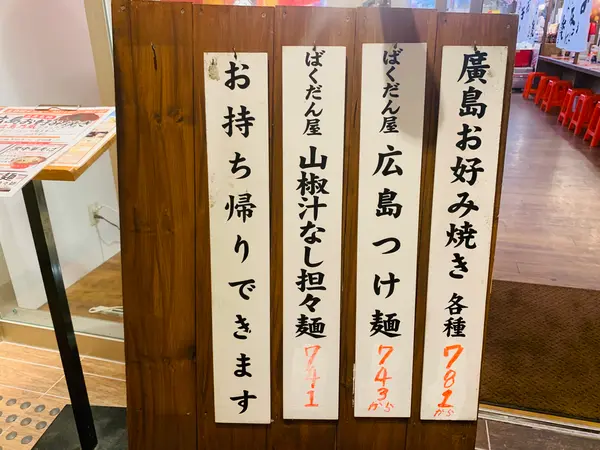 廣島お好み焼き 各種 781から
ばくだん屋 広島つけ麺 743から
ばくだん屋 山椒汁なし担々麺 741
お持ち帰りできます